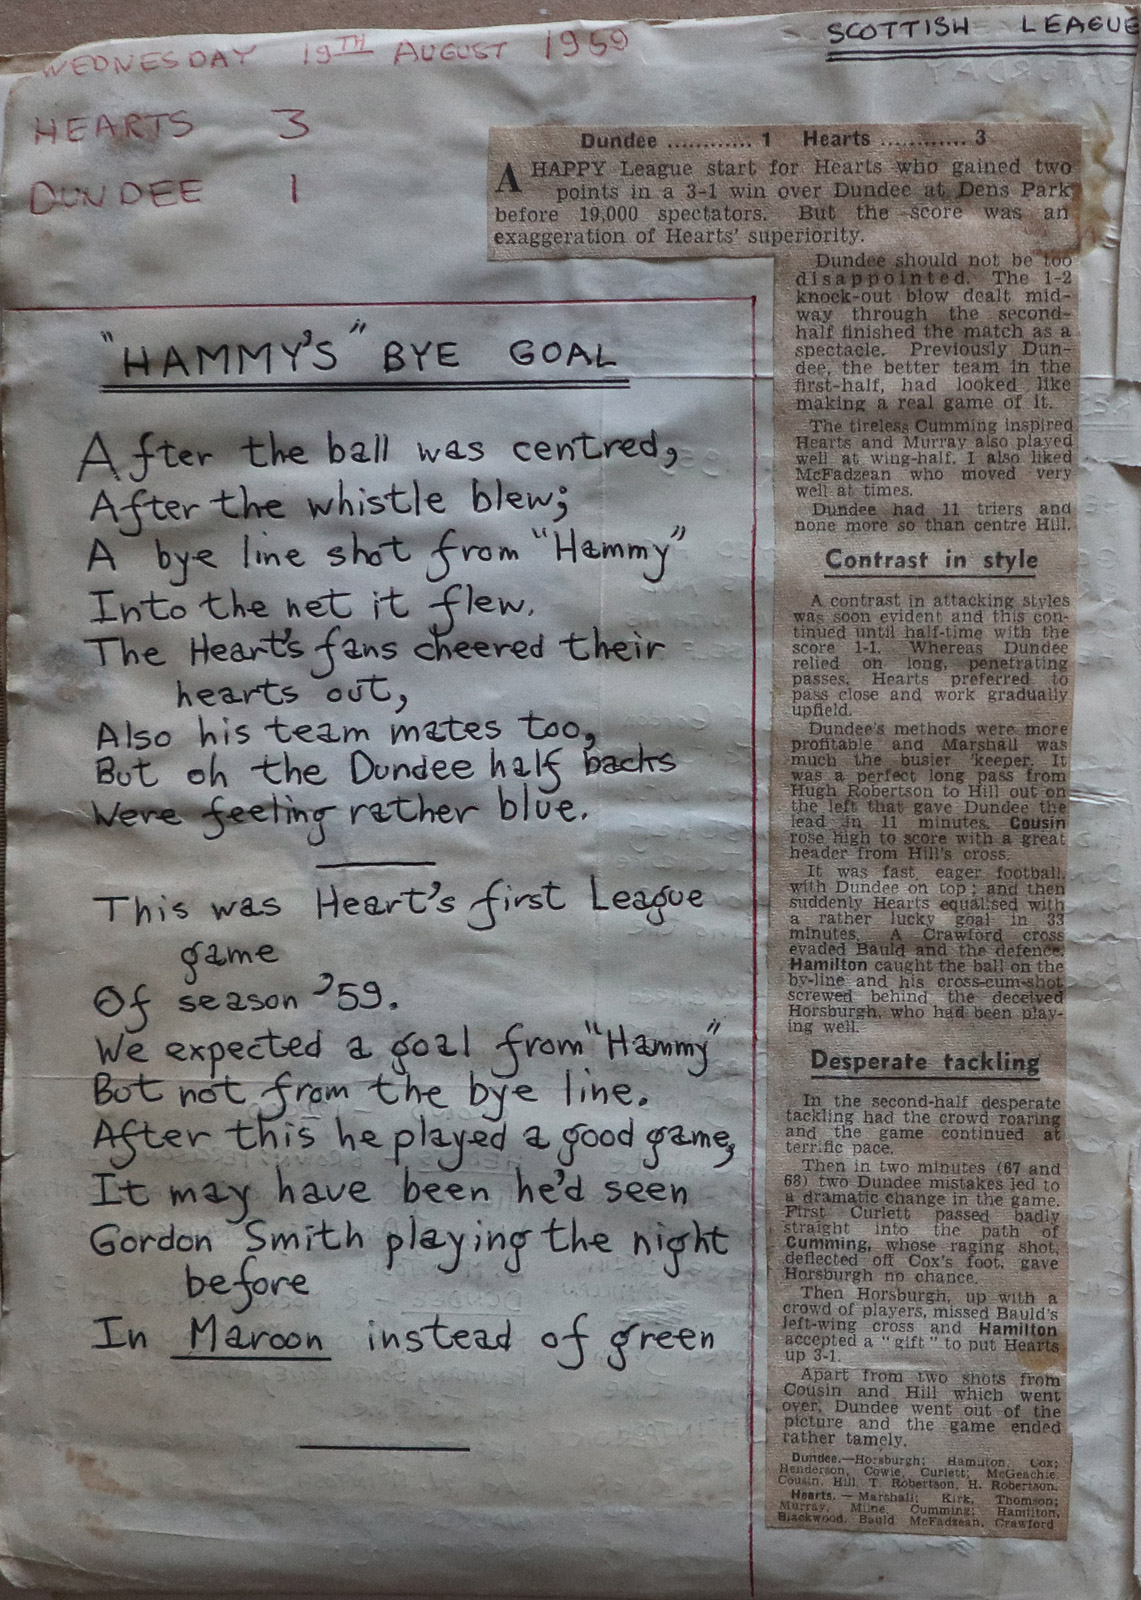 WEDNESDAY 19TH AUGUST 1959
SCOTTISH LEAGUE
HEARTS 3
DUNDEE 1
"HAMMY'S" BYE GOAL
After the ball was centred,
After the whistle blew;
A bye line shot from "Hammy"
Into the net it flew.
The Heart's fans cheered their
hearts out,
Also his team mates too,
But oh the Dundee half backs
Were feeling rather blue.
This was Heart's first League
game
Of season '59.
We expected a goal from "Hammy"
But not from the bye line.
After this he played a good game,
It may have been he'd seen
Gordon Smith playing the night
before
In Maroon instead of green
Dundee ............ 1 Hearts ............ 3
A HAPPY League start for Hearts who gained two
points in a 3-1 win over Dundee at Dens Park
before 19,000 spectators. But the score was an
exaggeration of Hearts' superiority.
Dundee should not be too
disappointed. The 1-2
knock-out blow dealt mid-
way through the second-
half finished the match as a
spectacle. Previously Dun-
dee, the better team in the
first-half, had looked like
making a real game of it.
The tireless Cumming inspired
Hearts and Murray also played
well at wing-half. I also liked
McFadzean who moved very
well at times.
Dundee had 11 triers and
none more so than centre Hill.
Contrast in style
A contrast in attacking styles
was soon evident and this con-
tinued until half-time with the
score 1-1. Whereas Dundee
relied on long, penetrating
passes, Hearts preferred to
pass close and work gradually
upfield.
Dundee's methods were more
profitable and Marshall was
much the busier 'keeper. It
was a perfect long pass from
Hugh Robertson to Hill out on
the left that gave Dundee the
lead in 11 minutes. Cousin
rose high to score with a great
header from Hill's cross.
It was fast, eager football,
with Dundee on top; and then
suddenly Hearts equalised with
a rather lucky goal in 33
minutes. A Crawford cross
evaded Bauld and the defence.
Hamilton caught the ball on the
by-line and his cross-cum-shot
screwed behind the deceived
Horsburgh, who had been play-
ing well.
Desperate tackling
In the second-half desperate
tackling had the crowd roaring
and the game continued at
terrific pace.
Then in two minutes (67 and
68) two Dundee mistakes led to
a dramatic change in the game.
First Curlett passed badly
straight into the path of
Cumming, whose raging shot,
deflected off Cox's foot, gave
Horsburgh no chance.
Then Horsburgh, up with a
crowd of players, missed Bauld's
left-wing cross and Hamilton
accepted a "gift" to put Hearts
up 3-1.
Apart from two shots from
Cousin and Hill which went
over, Dundee went out of the
picture and the game ended
rather tamely.
Dundee.—Horsburgh; Hamilton, Cox;
Henderson, Cowie, Curlett; McGeachie,
Cousin, Hill, T. Robertson, H. Robertson.
Hearts. — Marshall; Kirk, Thomson;
Murray, Milne, Cumming; Hamilton,
Blackwood, Bauld McFadzean, Crawford